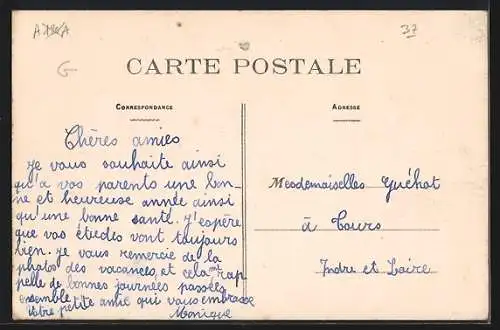 37
G
CARTE POSTALE
CORRESPONDANCE
ADRESSE
Chères amies
je vous souhaite ainsi
qu'a vos parents une bon-
ne et heureuse année ainsi
qu'une bonne santé. J'espère
que vos études vont toujours
bien. je vous remercie de la
photos des vacances, et cela m'ont rap
pelle de bonnes journées passées
ensemble
Votre petite amie qui vous embrasse
Monique
Mesdemoiselles Guéhot
à Tours
Indre et Loire